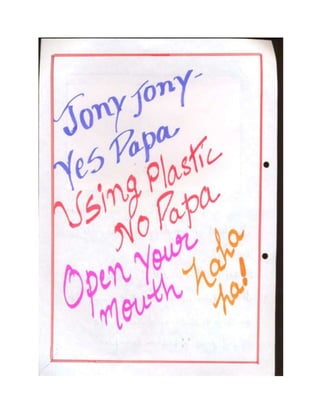 Jony Jony-
Yes Papa
Using Plastic
No Papa
Open Your
mouth haha
ha!